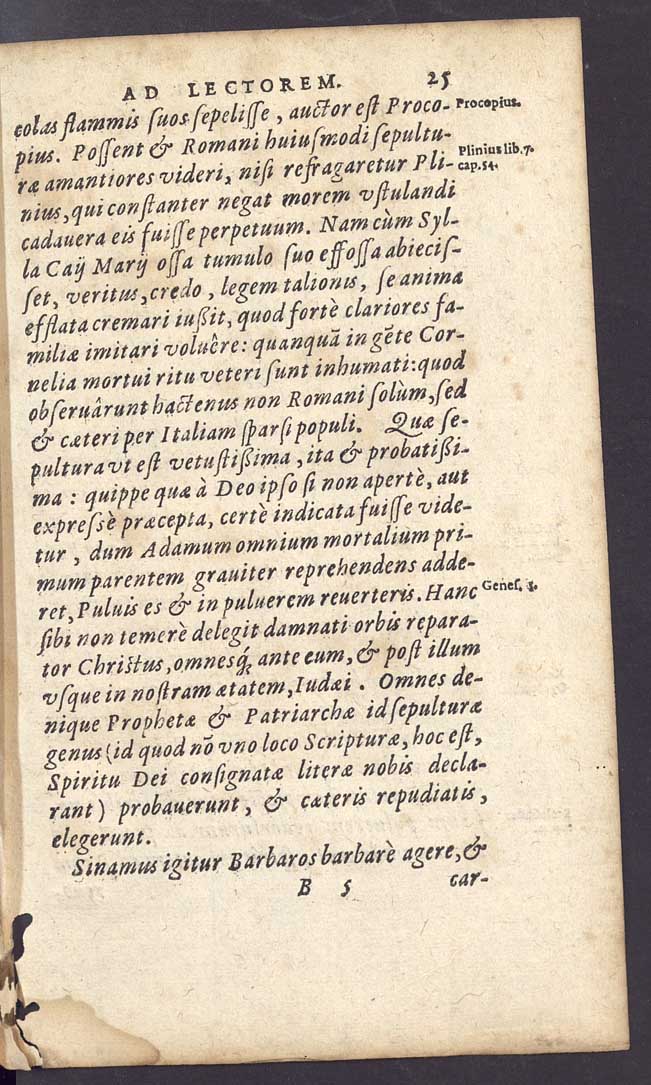 AD LECTOREM. 25
colas flammis ſuos ſepeliſſe, auctor eſt Proco-
Procopius.
pius. Poſſent & Romani huiuſmodi ſepultu-
ræ amantiores videri, niſi refragaretur Pli-
Plinius lib. 7.
cap. 54.
nius, qui conſtanter negat morem vſtulandi
cadauera eis fuiſſe perpetuum. Nam cùm Syl-
la Caÿ Marÿ oſſa tumulo ſuo effoſſa abieciſ-
ſet, veritus, credo, legem talionis, ſe anima
efflata cremari iußit, quod fortè clariores fa-
miliæ imitari voluêre: quanquā in gēte Cor-
nelia mortui ritu veteri ſunt inhumati: quod
obſeruârunt hactenus non Romani ſolùm, ſed
& cæteri per Italiam ſparſi populi. Quæ ſe-
pultura vt eſt vetuſtißima, ita & probatißi-
ma: quippe quæ à Deo ipſo ſi non apertè, aut
expreſsè præcepta, certè indicata fuiſſe vide-
tur, dum Adamum omnium mortalium pri-
mum parentem grauiter reprehendens adde-
ret, Puluis es & in puluerem reuerteris. Hanc
Geneſ. 3.
ſibi non temerè delegit damnati orbis repara-
tor Chriſtus, omnesq́; ante eum, & poſt illum
vſque in noſtram ætatem, Iudæi. Omnes de-
nique Prophetæ & Patriarchæ id ſepulturæ
genus (id quod nō vno loco Scripturæ, hoc eſt,
Spiritu Dei conſignatæ literæ nobis decla-
rant) probauerunt, & cæteris repudiatis,
elegerunt.
Sinamus igitur Barbaros barbarè agere, &
B 5 car-